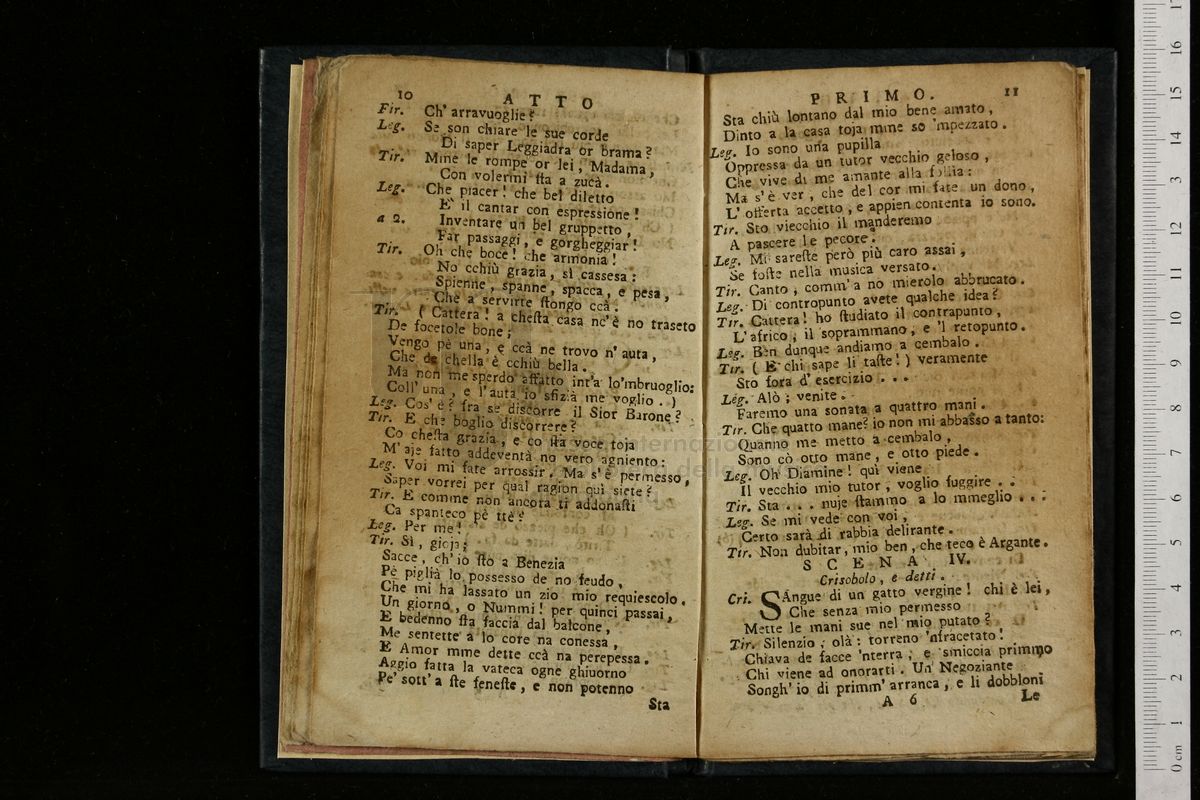 10
ATTO
Fir. Ch' arravuoglie?
Leg. Se son chiare le sue corde
Di saper Leggiadra or brama?
Tir. Mme le rompe or lei, Madama,
Con volermi ſta a zucà.
Leg. Che piacer! che bel diletto
E' il cantar con espressione!
a 2. Inventare un bel gruppetto,
Far passaggi, e gorgheggiar!
Tir. Oh che boce! che armonia!
No cchiù grazia, sì cassesa:
Spienne, spanne, spacca, e pesa,
Che a servirte ſtongo ccà.
Tir. ( Cattera! a cheſta casa nc'è no traseto
De focetole bone;
Vengo pè una, e ccà ne trovo n' auta,
Che de chella è cchiù bella.
Ma non me sperdo affatto int'a lo'mbruoglio:
Coll' una, e l'auta io sfizià me voglio. )
Leg. Cos' è? fra se discorre il Sior Barone?
Tir. E che boglio discorrere?
Co cheſta grazia, e co ſta voce toja
M' aje fatto addeventà no vero agniento:
Leg. Voi mi fate arrossir. Ma s'è permesso,
Saper vorrei per qual ragion quì siete?
Tir. E comme non ancora ti addonaſti
Ca spanteco pè ttè?
Leg. Per me!
Tir. Sì, gioja;
Sacce, ch' io ſto a Benezia
Pè piglià lo possesso de no feudo,
Che mi ha lassato un zio mio requiescolo.
Un giorno, o Nummi! per quinci passai,
E bedenno ſta faccia dal balcone,
Me sentette a lo core na conessa,
E Amor mme dette ccà na perepessa.
Aggio fatta la vateca ogne ghiuorno
Pe' sott' a ſte feneſte, e non potenno
Sta
PRIMO.
11
Sta chiù lontano dal mio bene amato,
Dinto a la casa toja mme so 'mpezzato.
Leg. Io sono una pupilla
Oppressa da un tutor vecchio geloso,
Che vive di me amante alla follia:
Ma s'è ver, che del cor mi fate un dono,
L' offerta accetto, e appien contenta io sono.
Tir. Sto viecchio il manderemo
A pascere le pecore.
Leg. Mi sareſte però più caro assai,
Se foſte nella musica versato.
Tir. Canto, comm' a no mierolo abbrucato.
Leg. Di contropunto avete qualche idea?
Tir. Cattera! ho ſtudiato il contrapunto,
L' africo, il soprammano, e 'l retopunto.
Leg. Ben dunque andiamo a cembalo.
Tir. ( E chi sape li taſte! ) veramente
Sto fora d' esercizio . . .
Leg. Alò; venite.
Faremo una sonata a quattro mani.
Tir. Che quatto mane? io non mi abbasso a tanto:
Quanno me metto a cembalo,
Sono cò otto mane, e otto piede.
Leg. Oh Diamine! quì viene
Il vecchio mio tutor, voglio fuggire . .
Tir. Sta . . . nuje ſtammo a lo mmeglio . . .
Leg. Se mi vede con voi,
Certo sarà di rabbia delirante.
Tir. Non dubitar, mio ben, che teco è Argante.
SCENA IV.
Crisobolo, e detti.
Cri. SAngue di un gatto vergine! chi è lei,
Che senza mio permesso
Mette le mani sue nel mio putato?
Tir. Silenzio; olà: torreno 'nfracetato!
Chiava de facce 'nterra, e smiccia primmo
Chi viene ad onorarti. Un Negoziante
Songh' io di primm' arranca, e li dobbloni
A 6
Le